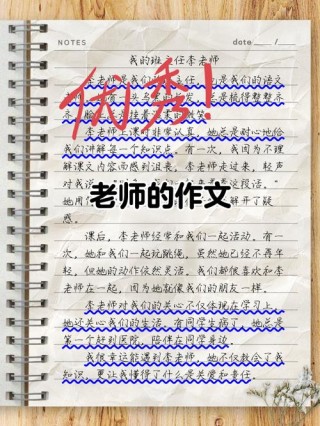 NOTES
date / /
我的班主任李老师
优秀!
李老师是我们的班主任，也是我们的语文
总是梳得整整齐
李老师上课时非常认真，她总是耐心地给
我们讲解每一个知识点。有一次，我因为不理
解课文内容而感到沮丧，李老师走过来，轻声
对我说
老师的作文
她用
解开了疑
惑。
课后，李老师经常和我们一起活动。有一
次，她和我们一起玩跳绳，虽然她已经不再年
轻，但她的动作依然灵活。我们都很喜欢和李
老师在一起，因为她就像我们的朋友一样。
李老师对我们的关心不仅体现在学习上，
她还关心我们的生活。有同学生病了，她总是
第一个赶到医院，陪伴在同学身边。
我很幸运能遇到李老师，她不仅教会了我
知识，更让我懂得了什么是关爱和责任。